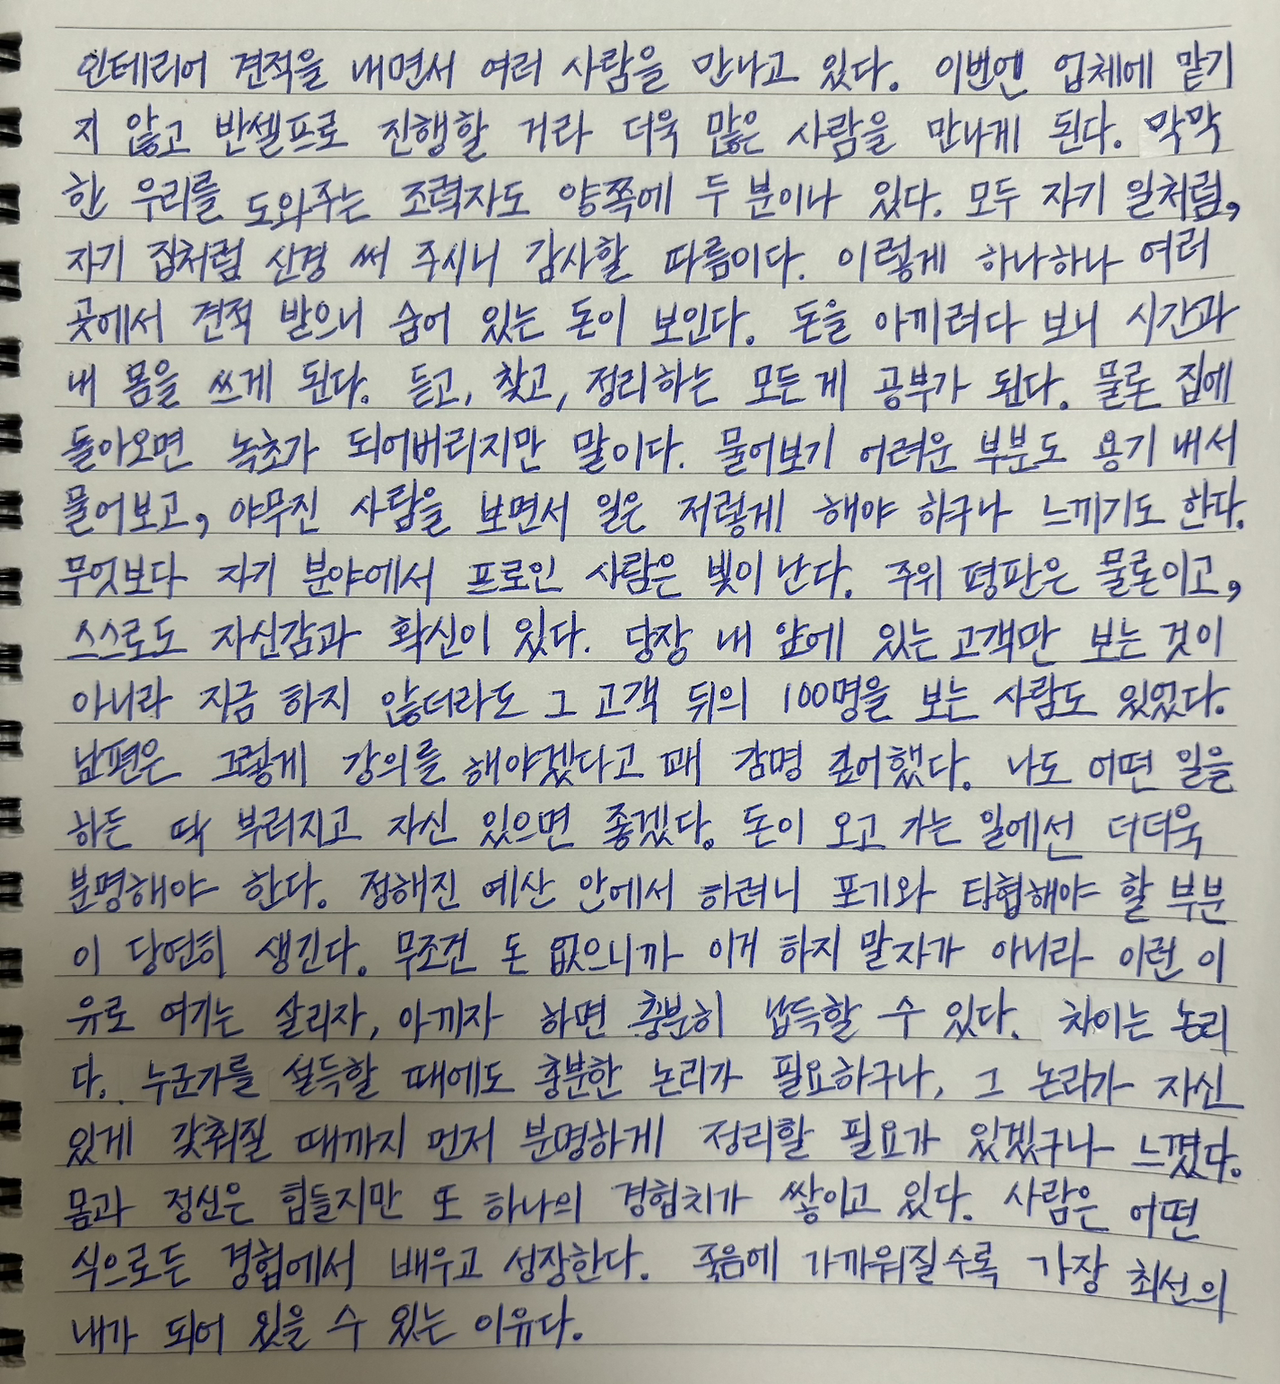 인테리어 견적을 내면서 여러 사람을 만나고 있다. 이번엔 업체에 맡기
지 않고 반셀프로 진행할 거라 더욱 많은 사람을 만나게 된다. 막막
한 우리를 도와주는 조력자도 양쪽에 두 분이나 있다. 모두 자기 일처럼,
자기 집처럼 신경 써 주시니 감사할 따름이다. 이렇게 하나하나 여러
곳에서 견적 받으니 숨어 있는 돈이 보인다. 돈을 아끼려다 보니 시간과
내 몸을 쓰게 된다. 듣고, 찾고, 정리하는 모든 게 공부가 된다. 물론 집에
돌아오면 녹초가 되어버리지만 말이다. 물어보기 어려운 부분도 용기 내서
물어보고, 야무진 사람을 보면서 일은 저렇게 해야 하구나 느끼기도 한다.
무엇보다 자기 분야에서 프로인 사람은 빛이 난다. 주위 평판은 물론이고,
스스로도 자신감과 확신이 있다. 당장 내 앞에 있는 고객만 보는 것이
아니라 지금 하지 않더라도 그 고객 뒤의 100명을 보는 사람도 있었다.
남편은 그렇게 강의를 해야겠다고 꽤 감명 깊어했다. 나도 어떤 일을
하든 딱 부러지고 자신 있으면 좋겠다. 돈이 오고 가는 일에선 더더욱
분명해야 한다. 정해진 예산 안에서 하려니 포기와 타협해야 할 부분
이 당연히 생긴다. 무조건 돈 없으니까 이거 하지 말자가 아니라 이런 이
유로 여기는 살리자, 아끼자 하면 충분히 납득할 수 있다. 차이는 논리
다. 누군가를 설득할 때에도 충분한 논리가 필요하구나, 그 논리가 자신
있게 갖춰질 때까지 먼저 분명하게 정리할 필요가 있겠구나 느꼈다.
몸과 정신은 힘들지만 또 하나의 경험치가 쌓이고 있다. 사람은 어떤
식으로든 경험에서 배우고 성장한다. 죽음에 가까워질수록 가장 최선의
내가 되어 있을 수 있는 이유다.